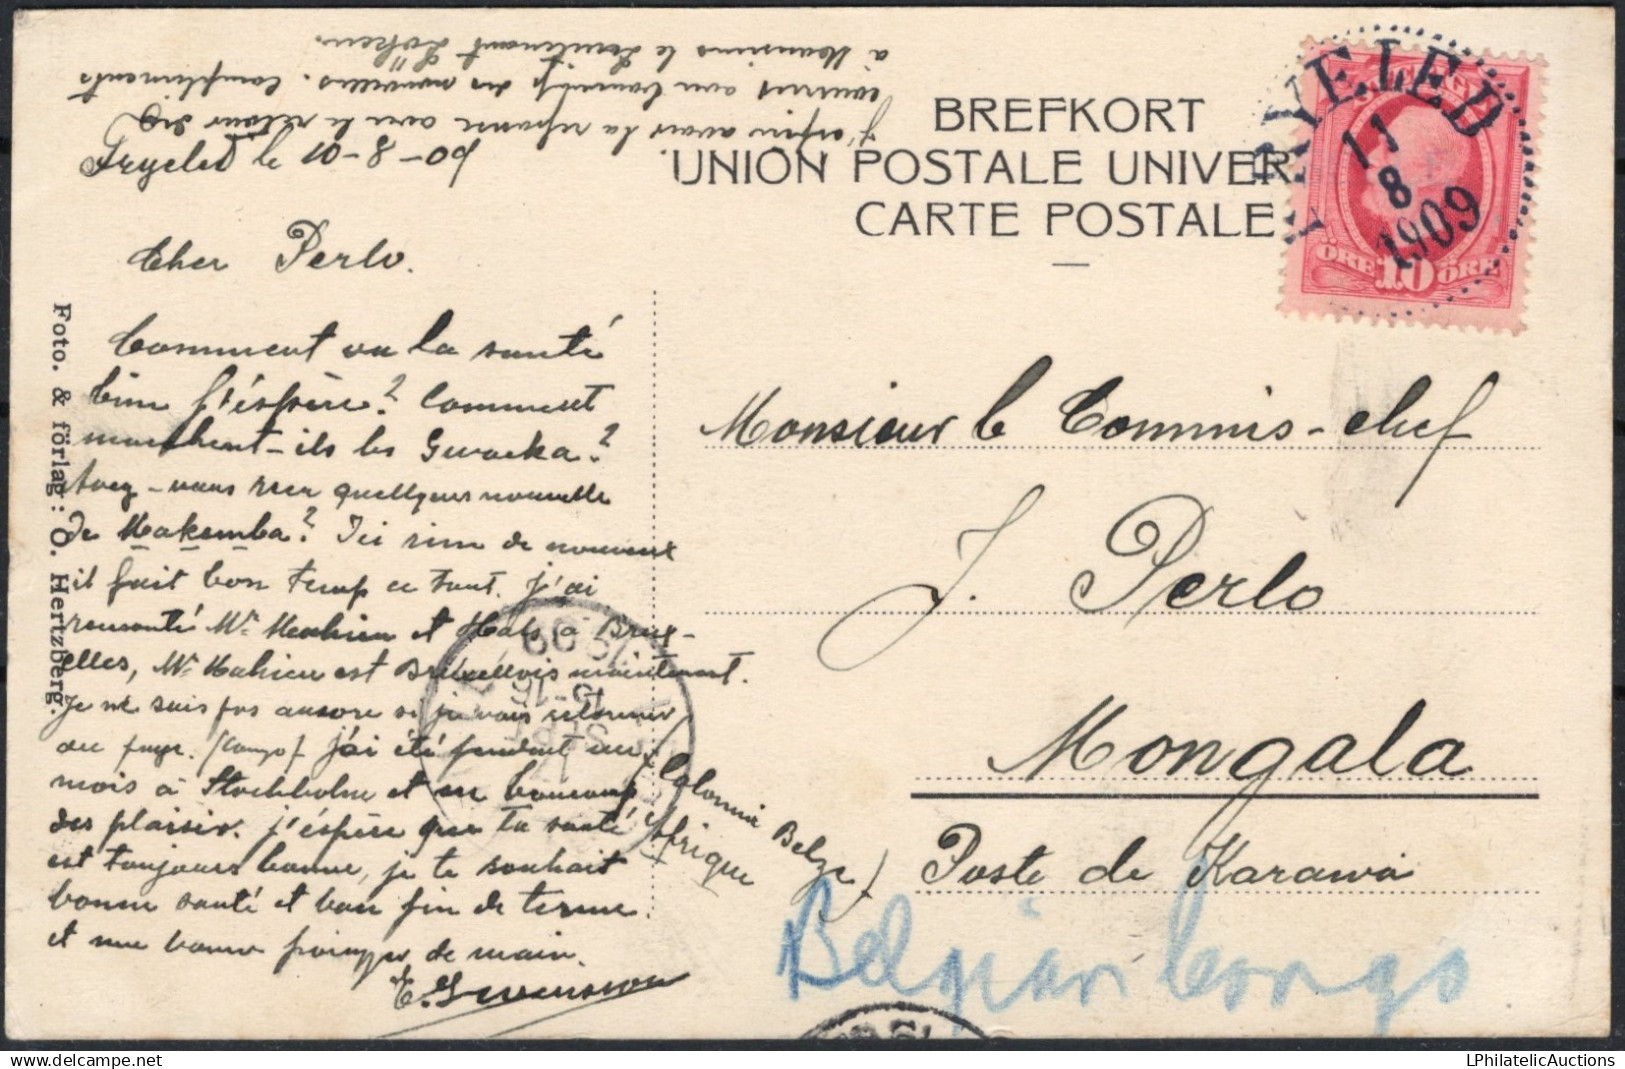 J'espère avoir la reponse avec le retour du
courrier avec beaucoup des nouvelles. Compliments
à Monsieur le Lieutenant Löken.
Fryeled le 10-8-09
BREFKORT
UNION POSTALE UNIVER
CARTE POSTALE
FRYELED
11
8
1909
ÖRE 10 ÖRE
Cher Perlo.
Comment va la santé
bien j'éspère? Comment
marchent-ils les Gwaka?
Avez-vous reçu quellques nouvelle
de Makemba? Ici rien de nouveau
il fait bon temp ce tout. j'ai
rencontré Mr Mahieu et Hals à Brux-
elles, Mr Mahieu est Bruxellois maintenant.
Je ne sais pas ancore si je vais retourner
au pays. (Congo) J'ai été pendant un
mois à Stockholm et eu boucoup
des plaisir. j'éspère que ta santé
est toujours bonne, je te souhait
bonne santé et bon fin de terme.
et une bonne poingée de main.
E. Svensson
Foto. & förlag: O. Hertzberg.
Monsieur le Commis-chef
J. Perlo
Mongala
Poste de Karawa
(Colonnie Belge
Afrique)
Belgien Congo
LPhilatelicAuctions